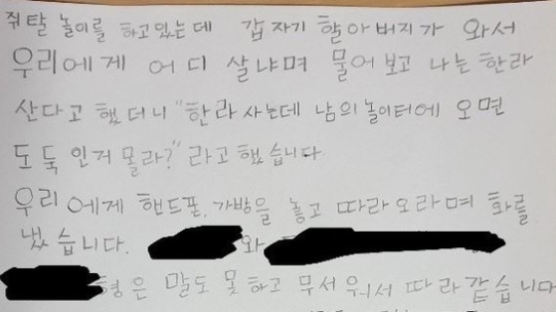 쥐탈 놀이를 하고있는데 갑자기 할아버지가 와서
우리에게 어디 살냐며 물어보고 나는 한라
산다고 했더니 "한라 사는데 남의놀이터에 오면
도둑인거 몰라?" 라고 했습니다.
우리에게 핸드폰, 가방을 놓고 따라오라며 화를
냈습니다. 와
형은 말도 못하고 무서워서 따라갔습니다